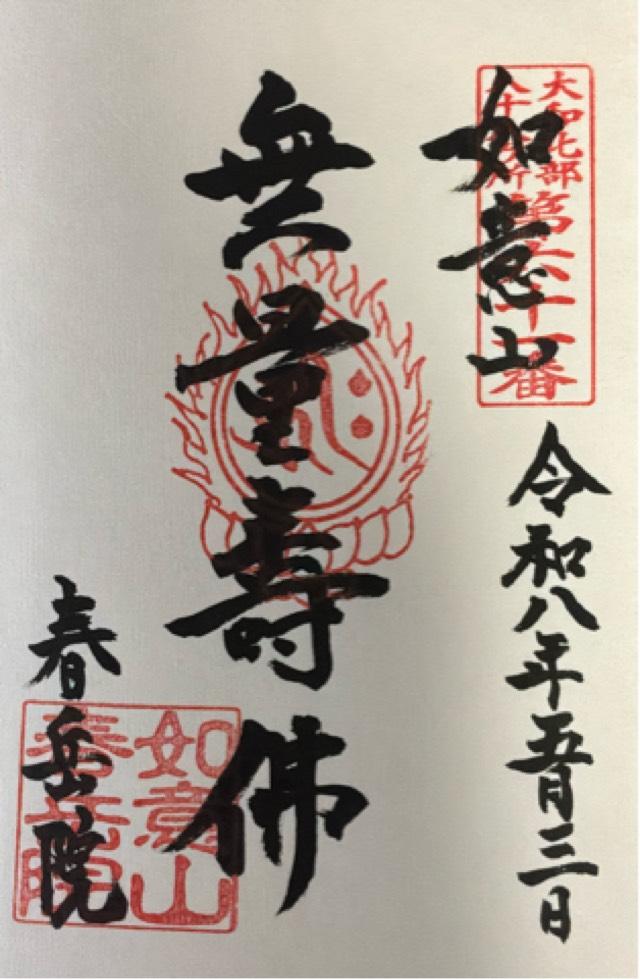 大和北部
八十八ヶ所
第六十一番
如意山
令和八年五月三日
無量壽佛
春岳院
如意山
春岳院